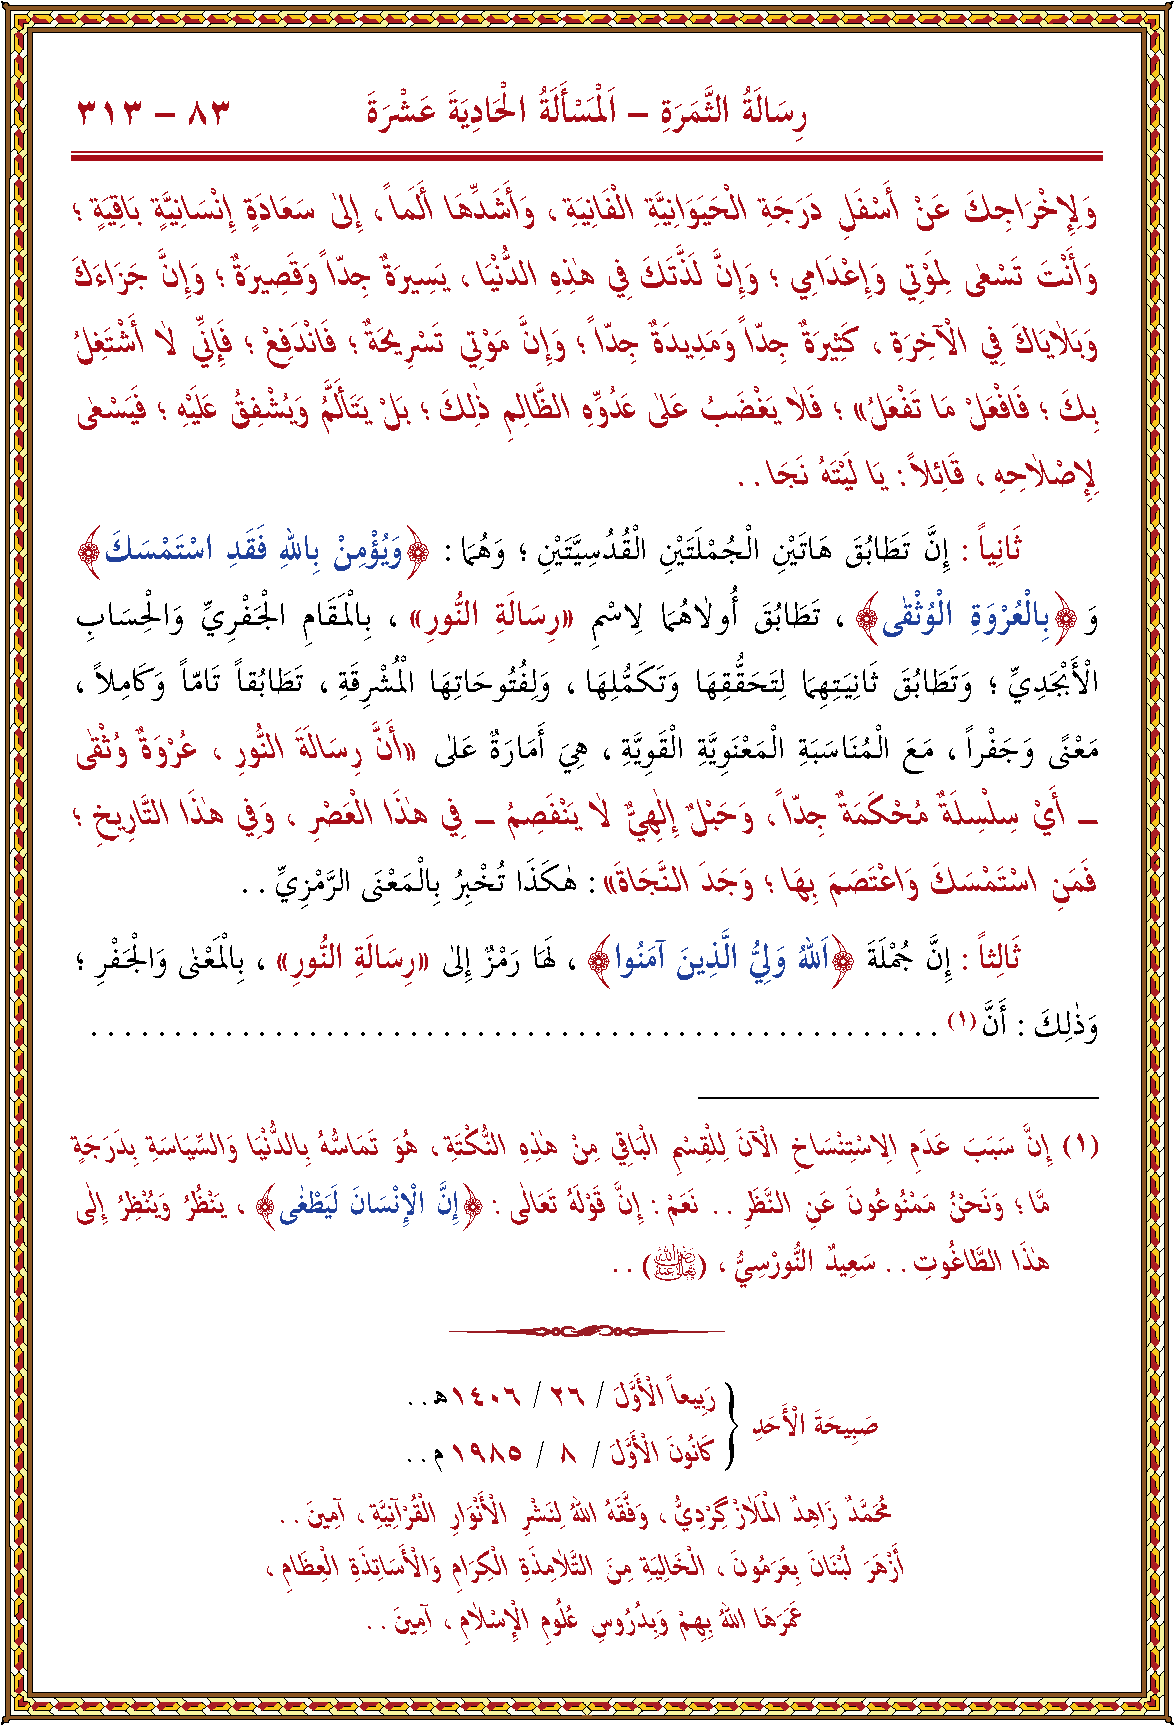 رِسَالَةُ الثَّمَرَةِ – اَلْمَسْأَلَةُ الْحَادِيَةَ عَشْرَةَ ٨٣ – ٣١٣
وَلِإِخْرَاجِكَ عَنْ أَسْفَلِ دَرَجَةِ الْحَيَوَانِيَّةِ الْفَانِيَةِ ، وَأَشَدِّهَا أَلَماً ، إِلىٰ سَعَادَةٍ إِنْسَانِيَّةٍ بَاقِيَةٍ ؛
وَأَنْتَ تَسْعىٰ لِمَوْتِي وَإِعْدَامِي ؛ وَإِنَّ لَذَّتَكَ فِي هٰذِهِ الدُّنْيَا ، يَسِيرَةٌ جِدّاً وَقَصِيرَةٌ ؛ وَإِنَّ جَزَاءَكَ
وَبَلَايَاكَ فِي الْآخِرَةِ ، كَثِيرَةٌ جِدّاً وَمَدِيدَةٌ جِدّاً ؛ وَإِنَّ مَوْتِي تَسْرِيحَةٌ ؛ فَانْدَفِعْ ؛ فَإِنِّي لَا أَشْتَغِلُ
بِكَ ؛ فَافْعَلْ مَا تَفْعَلُ» ؛ فَلَا يَغْضَبُ عَلىٰ عَدُوِّهِ الظَّالِمِ ذٰلِكَ ؛ بَلْ يَتَأَلَّمُ وَيُشْفِقُ عَلَيْهِ ؛ فَيَسْعىٰ
لِإِصْلَاحِهِ ، قَائِلاً : يَا لَيْتَهُ نَجَا . .
ثَانِياً : إِنَّ تَطَابُقَ هَاتَيْنِ الْجُمْلَتَيْنِ الْقُدُسِيَّتَيْنِ ؛ وَهُمَا : ﴿وَيُؤْمِنْ بِاللهِ فَقَدِ اسْتَمْسَكَ﴾
وَ ﴿بِالْعُرْوَةِ الْوُثْقٰى﴾ ، تَطَابُقَ أُولَاهُمَا لِاسْمِ «رِسَالَةِ النُّورِ» ، بِالْمَقَامِ الْجَفْرِيِّ وَالْحِسَابِ
الْأَبْجَدِيِّ ؛ وَتَطَابُقَ ثَانِيَتِهِمَا لِتَحَقُّقِهَا وَتَكَمُّلِهَا ، وَلِفُتُوحَاتِهَا الْمُشْرِقَةِ ، تَطَابُقاً تَامّاً وَكَامِلاً ،
مَعْنًى وَجَفْراً ، مَعَ الْمُنَاسَبَةِ الْمَعْنَوِيَّةِ الْقَوِيَّةِ ، هِيَ أَمَارَةٌ عَلىٰ «أَنَّ رِسَالَةَ النُّورِ ، عُرْوَةٌ وُثْقٰى
– أَيْ سِلْسِلَةٌ مُحْكَمَةٌ جِدّاً ، وَحَبْلٌ إِلٰهِيٌّ لَا يَنْفَصِمُ – فِي هٰذَا الْعَصْرِ ، وَفِي هٰذَا التَّارِيخِ ؛
فَمَنِ اسْتَمْسَكَ وَاعْتَصَمَ بِهَا ؛ وَجَدَ النَّجَاةَ» : هٰكَذَا تُخْبِرُ بِالْمَعْنَى الرَّمْزِيِّ . .
ثَالِثاً : إِنَّ جُمْلَةَ ﴿اَللهُ وَلِيُّ الَّذِينَ آمَنُوا﴾ ، لَهَا رَمْزٌ إِلىٰ «رِسَالَةِ النُّورِ» ، بِالْمَعْنٰى وَالْجَفْرِ ؛
وَذٰلِكَ : أَنَّ (١) . . . . . . . . . . . . . . . . . . . . . . . . . . . . . . . . . . . . . . . . . . . . . . . . . .
(١) إِنَّ سَبَبَ عَدَمِ الِاسْتِنْسَاخِ الْآنَ لِلْقِسْمِ الْبَاقِي مِنْ هٰذِهِ النُّكْتَةِ ، هُوَ تَمَاسُّهُ بِالدُّنْيَا وَالسِّيَاسَةِ بِدَرَجَةٍ
مَّا ؛ وَنَحْنُ مَمْنُوعُونَ عَنِ النَّظَرِ . . نَعَمْ : إِنَّ قَوْلَهُ تَعَالٰى : ﴿إِنَّ الْإِنْسَانَ لَيَطْغٰى﴾ ، يَنْظُرُ وَيُنْظِرُ إِلٰى
هٰذَا الطَّاغُوتِ . . سَعِيدٌ النُّورْسِيُّ ، (رضي الله تعالى عنه) . .
صَبِيحَةَ الْأَحَدِ
رَبِيعاً الْأَوَّلَ / ٢٦ / ١٤٠٦ هـ . .
كَانُونَ الْأَوَّلَ / ٨ / ١٩٨٥ م . .
مُحَمَّدٌ زَاهِدٌ الْمَلَازْكِرْدِيُّ ، وَفَّقَهُ اللهُ لِنَشْرِ الْأَنْوَارِ الْقُرْآنِيَّةِ ، آمِينَ . .
أَزْهَرَ لُبْنَانَ بِعَرَمُونَ ، الْخَالِيَةِ مِنَ التَّلَامِذَةِ الْكِرَامِ وَالْأَسَاتِذَةِ الْعِظَامِ ،
عَمَرَهَا اللهُ بِهِمْ وَبِدُرُوسِ عُلُومِ الْإِسْلَامِ ، آمِينَ . .